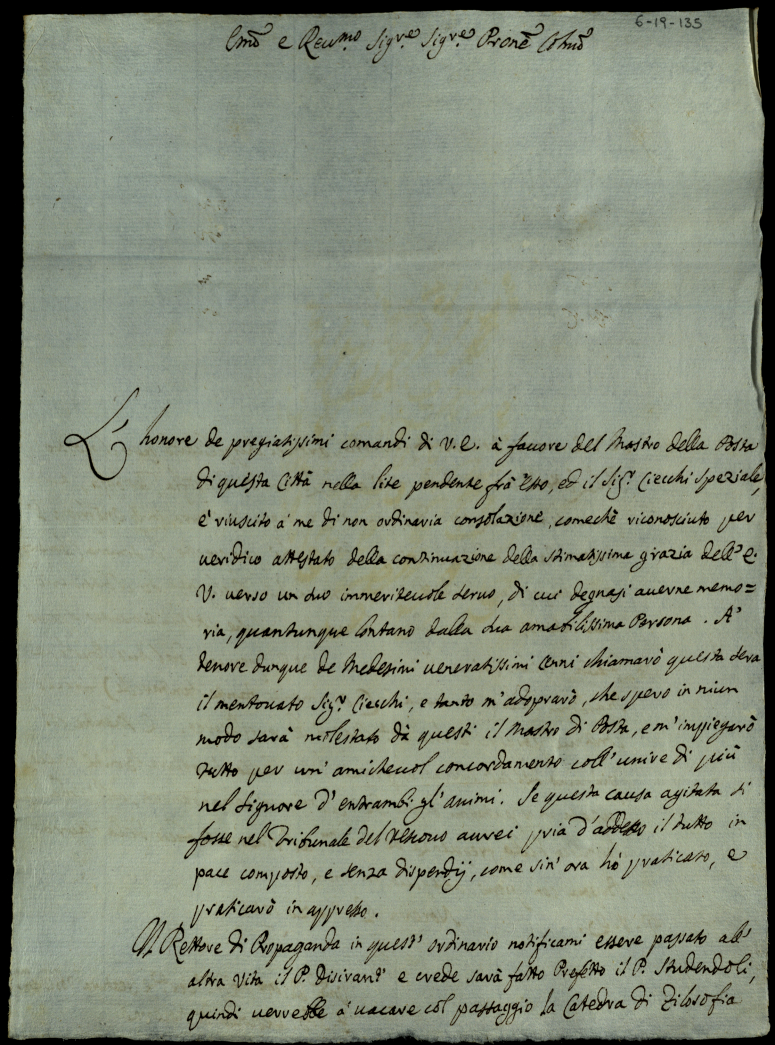 6-19-135
Emõ e Reu.mo Sig.re Sig.re Pronẽ Colmõ
L' honore de pregiatissimi comandi di V. E. à fauore del Mastro della Posta
di questa Città nella lite pendente frà esso, ed il Sig.r Ciecchi speziale,
è riuscito à me di non ordinaria consolazione, comechè riconosciuto per
ueridico attestato della continuazione della stimatissima grazia dell' E.
V. uerso un suo immeriteuole seruo, di cui degnasi auerne memo=
ria, quantunque lontano dalla sua amabilissima Persona. A'
tenore dunque de medesimi ueneratissimi cenni chiamarò questa sera
il mentouato Sig.r Ciecchi, e tanto m' adoprarò, che spero in niun
modo sarà molestato dà questi il Mastro di Posta, e m' impiegarò
tutto per un' amicheuol concordamento coll' unire di più
nel Signore d' entrambi gl' animi. Se questa causa agitata si
fosse nel Tribunale del Vescouo aurei pria d' adesso il tutto in
pace composto, e senza dispendij, come sin' ora hò praticato, e
praticarò in appresso.
Il Rettore di Propaganda in quest' ordinario notificami essere passato all'
altra Vita il P. Disirant' e crede sarà fatto Prefetto il P. Studendoli,
quindi uerrebbe à uacare col passaggio la Catedra di Filosofia